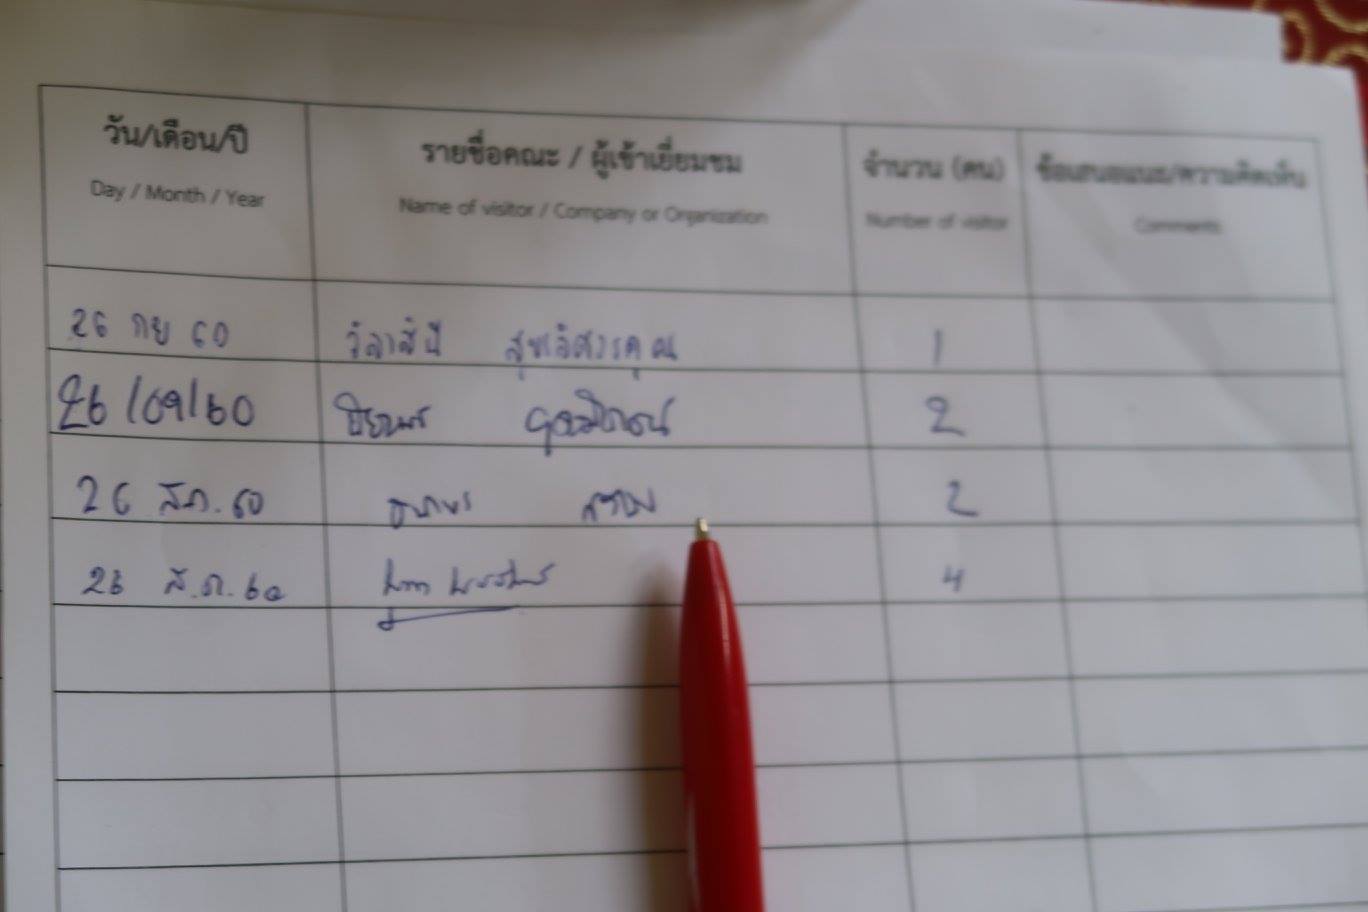 วัน/เดือน/ปี รายชื่อคณะ / ผู้เข้าเยี่ยมชม จำนวน (คน) ข้อเสนอแนะ/ความคิดเห็น
Day / Month / Year Name of visitor / Company or Organization Number of visitor Comments
26 กย 60 วิลาสินี 1
26/09/60 2
26 สค. 60 2
26 ส.ค. 60 4